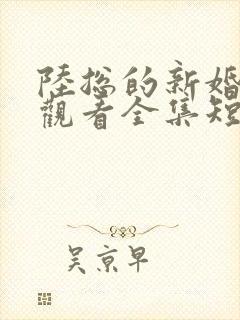 陸總的新婚
觀看全集短
吳京早